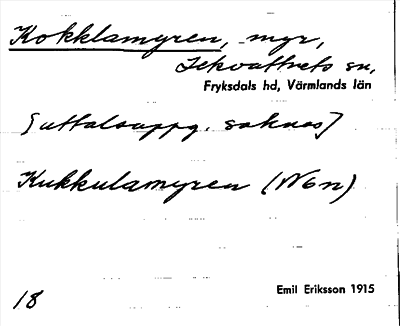 Kokklamyren, myr,
Lekvattnets sn,
Fryksdals hd, Värmlands län
[uttalsuppg. saknas]
Kukkulamyren (N6n)
18
Emil Eriksson 1915